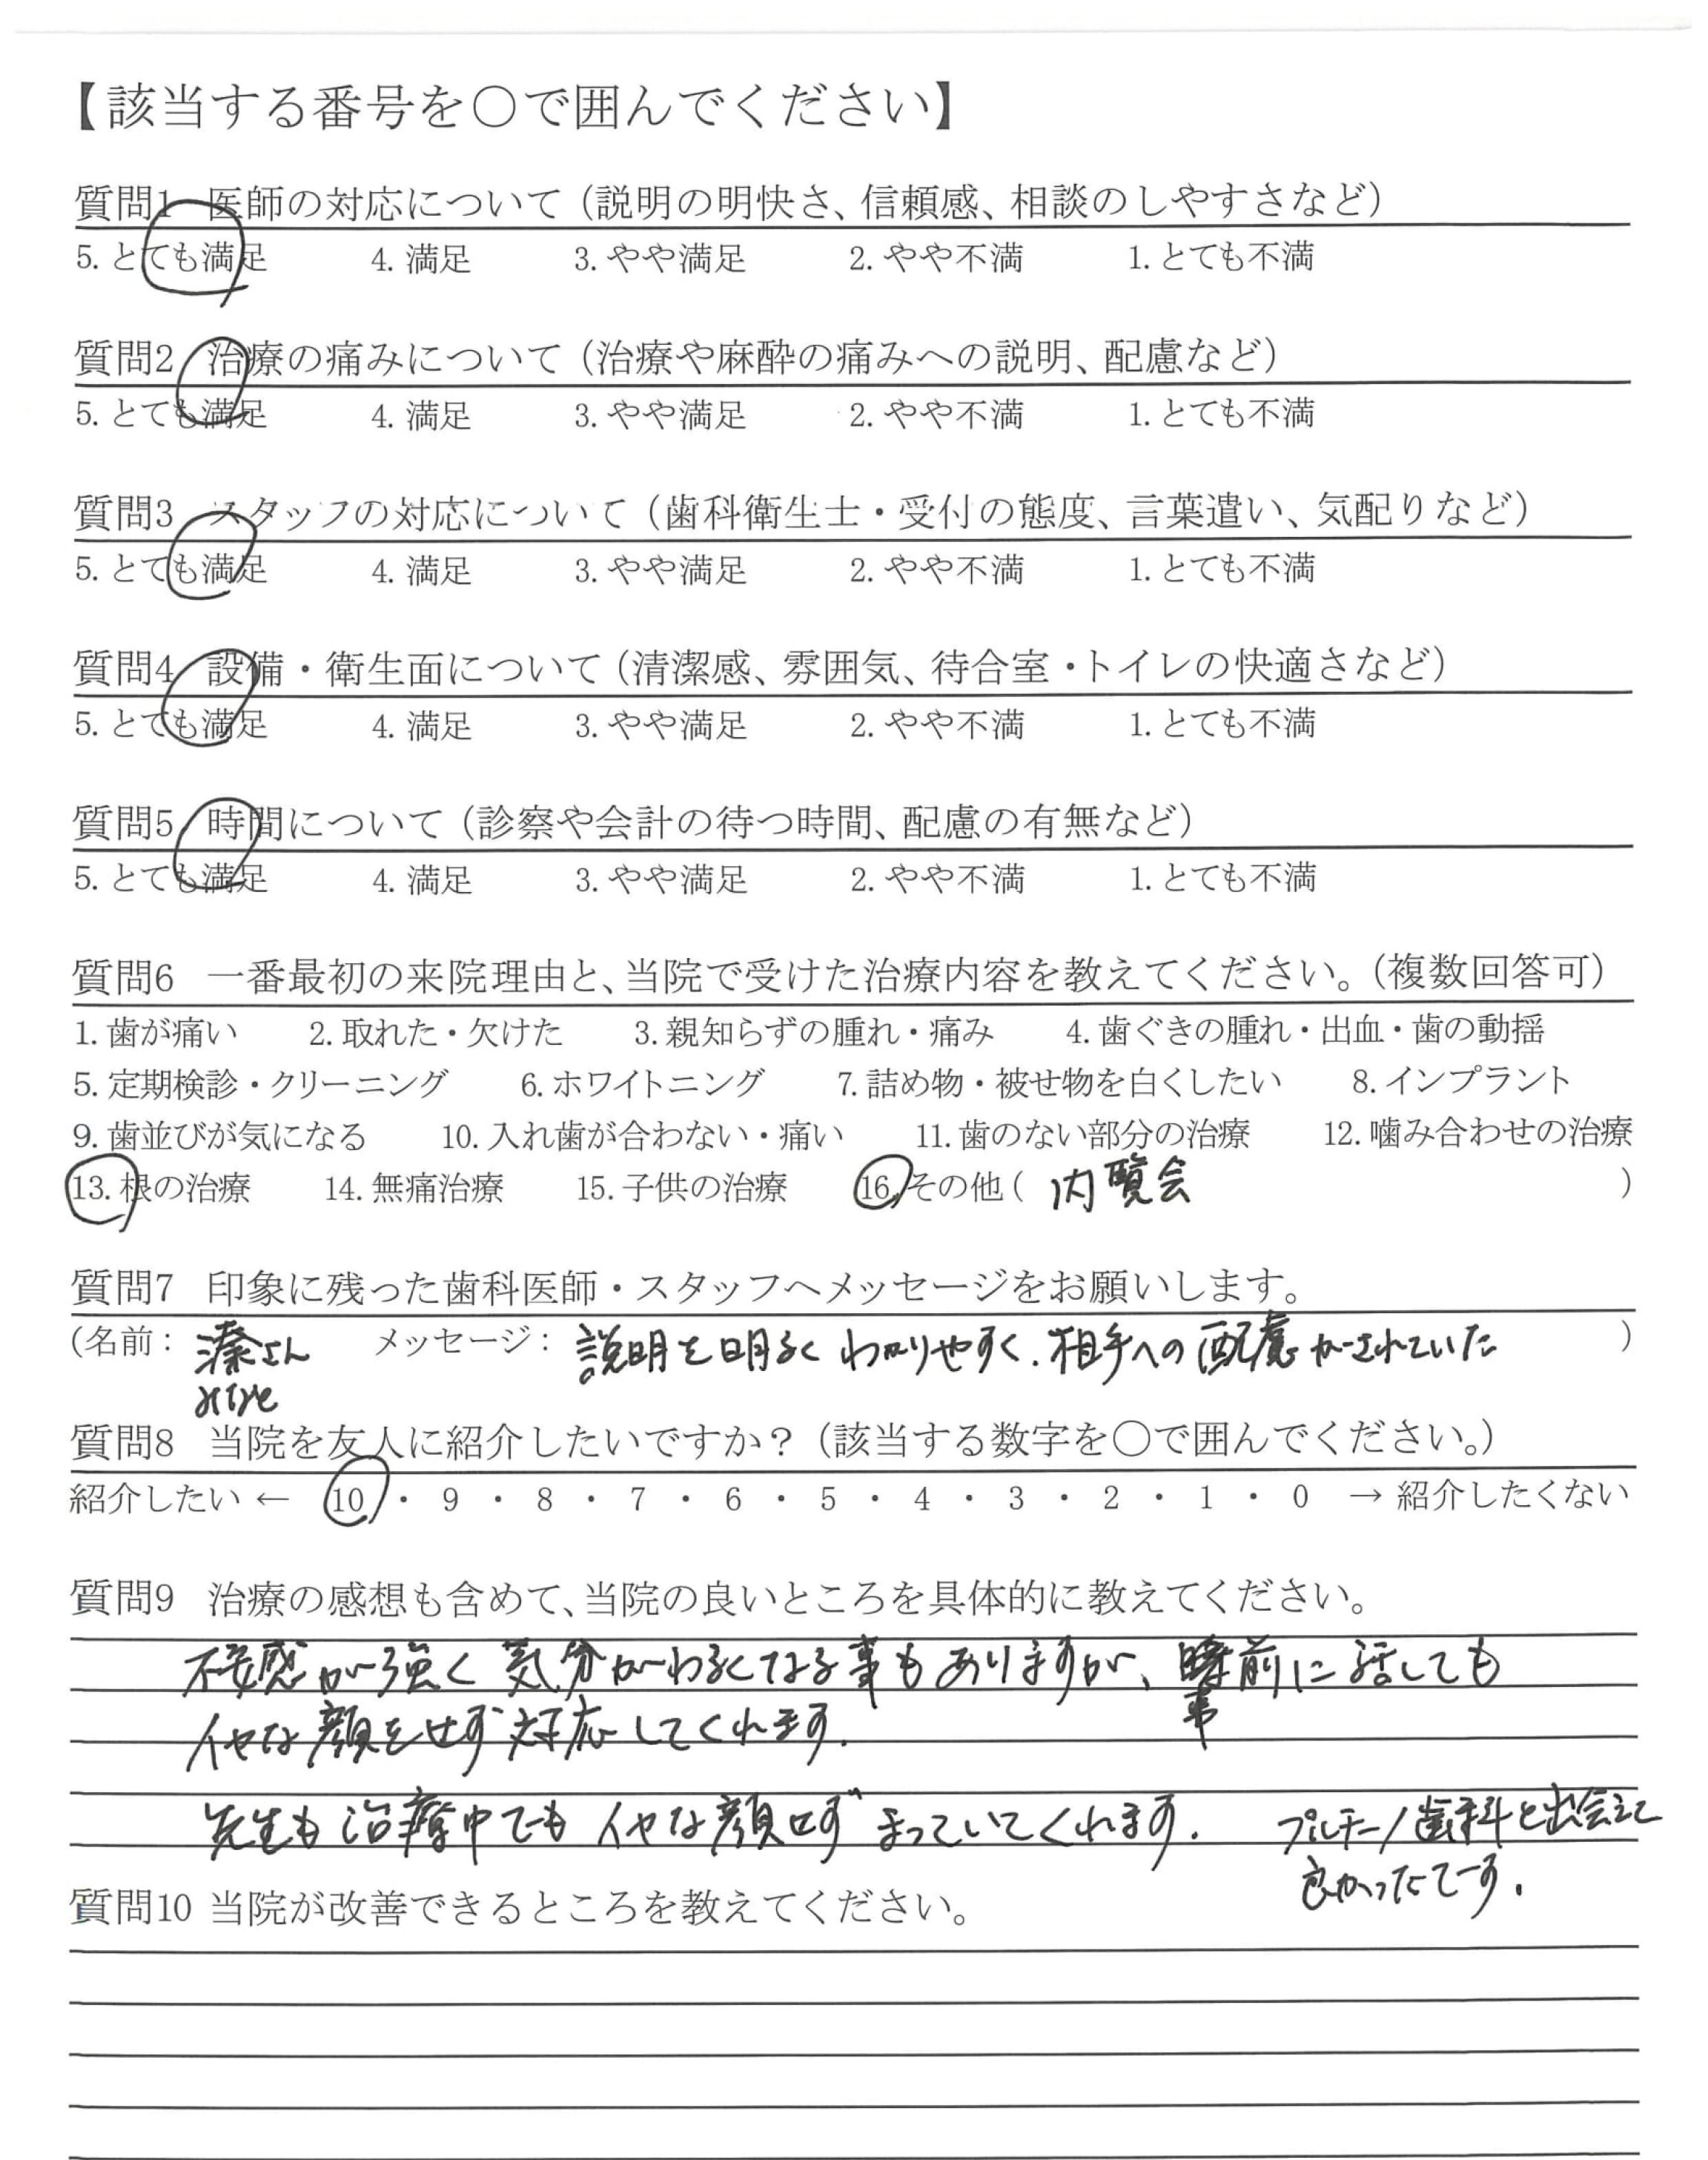 【該当する番号を○で囲んでください】
質問1 医師の対応について（説明の明快さ、信頼感、相談のしやすさなど）
5. とても満足 4. 満足 3. やや満足 2. やや不満 1. とても不満
質問2 治療の痛みについて（治療や麻酔の痛みへの説明、配慮など）
5. とても満足 4. 満足 3. やや満足 2. やや不満 1. とても不満
質問3 スタッフの対応について（歯科衛生士・受付の態度、言葉遣い、気配りなど）
5. とても満足 4. 満足 3. やや満足 2. やや不満 1. とても不満
質問4 設備・衛生面について（清潔感、雰囲気、待合室・トイレの快適さなど）
5. とても満足 4. 満足 3. やや満足 2. やや不満 1. とても不満
質問5 時間について（診察や会計の待つ時間、配慮の有無など）
5. とても満足 4. 満足 3. やや満足 2. やや不満 1. とても不満
質問6 一番最初の来院理由と、当院で受けた治療内容を教えてください。（複数回答可）
1. 歯が痛い 2. 取れた・欠けた 3. 親知らずの腫れ・痛み 4. 歯ぐきの腫れ・出血・歯の動揺
5. 定期検診・クリーニング 6. ホワイトニング 7. 詰め物・被せ物を白くしたい 8. インプラント
9. 歯並びが気になる 10. 入れ歯が合わない・痛い 11. 歯のない部分の治療 12. 噛み合わせの治療
13. 根の治療 14. 無痛治療 15. 子供の治療 16. その他（ 内覧会 ）
質問7 印象に残った歯科医師・スタッフへメッセージをお願いします。
（名前： さん メッセージ： 説明を明るくわかりやすく.相手への配慮がされていた ）
質問8 当院を友人に紹介したいですか？（該当する数字を○で囲んでください。）
紹介したい ← 10 ・ 9 ・ 8 ・ 7 ・ 6 ・ 5 ・ 4 ・ 3 ・ 2 ・ 1 ・ 0 → 紹介したくない
質問9 治療の感想も含めて、当院の良いところを具体的に教えてください。
不安感が強く気分がわるくなる事もありますが、事前に話しても
イヤな顔をせず対応してくれます.
先生も治療中でもイヤな顔せずまっていてくれます. プルチーノ歯科と出会えて
良かったです.
質問10 当院が改善できるところを教えてください。